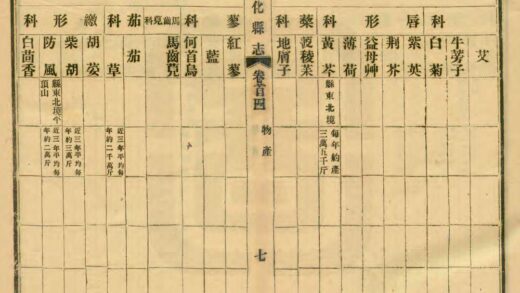 艾
牛蒡子
科
白菊
唇
紫英
荆芥
形
益母艸
薄荷
科
黃芩
縣東北境
每年約產
三萬五千斤
藜
菠稜菜
科
地屑子
化縣志
物產
七
蓼
紅蓼
藍
科
何首烏
馬齒莧科
馬齒莧
茄
茄
科
草
近三年平均每
年約二千萬斤
繖
胡荽
形
柴胡
近三年平均每
年約三萬斤
防風
近三年平均每
年約二萬斤
科
白茴香